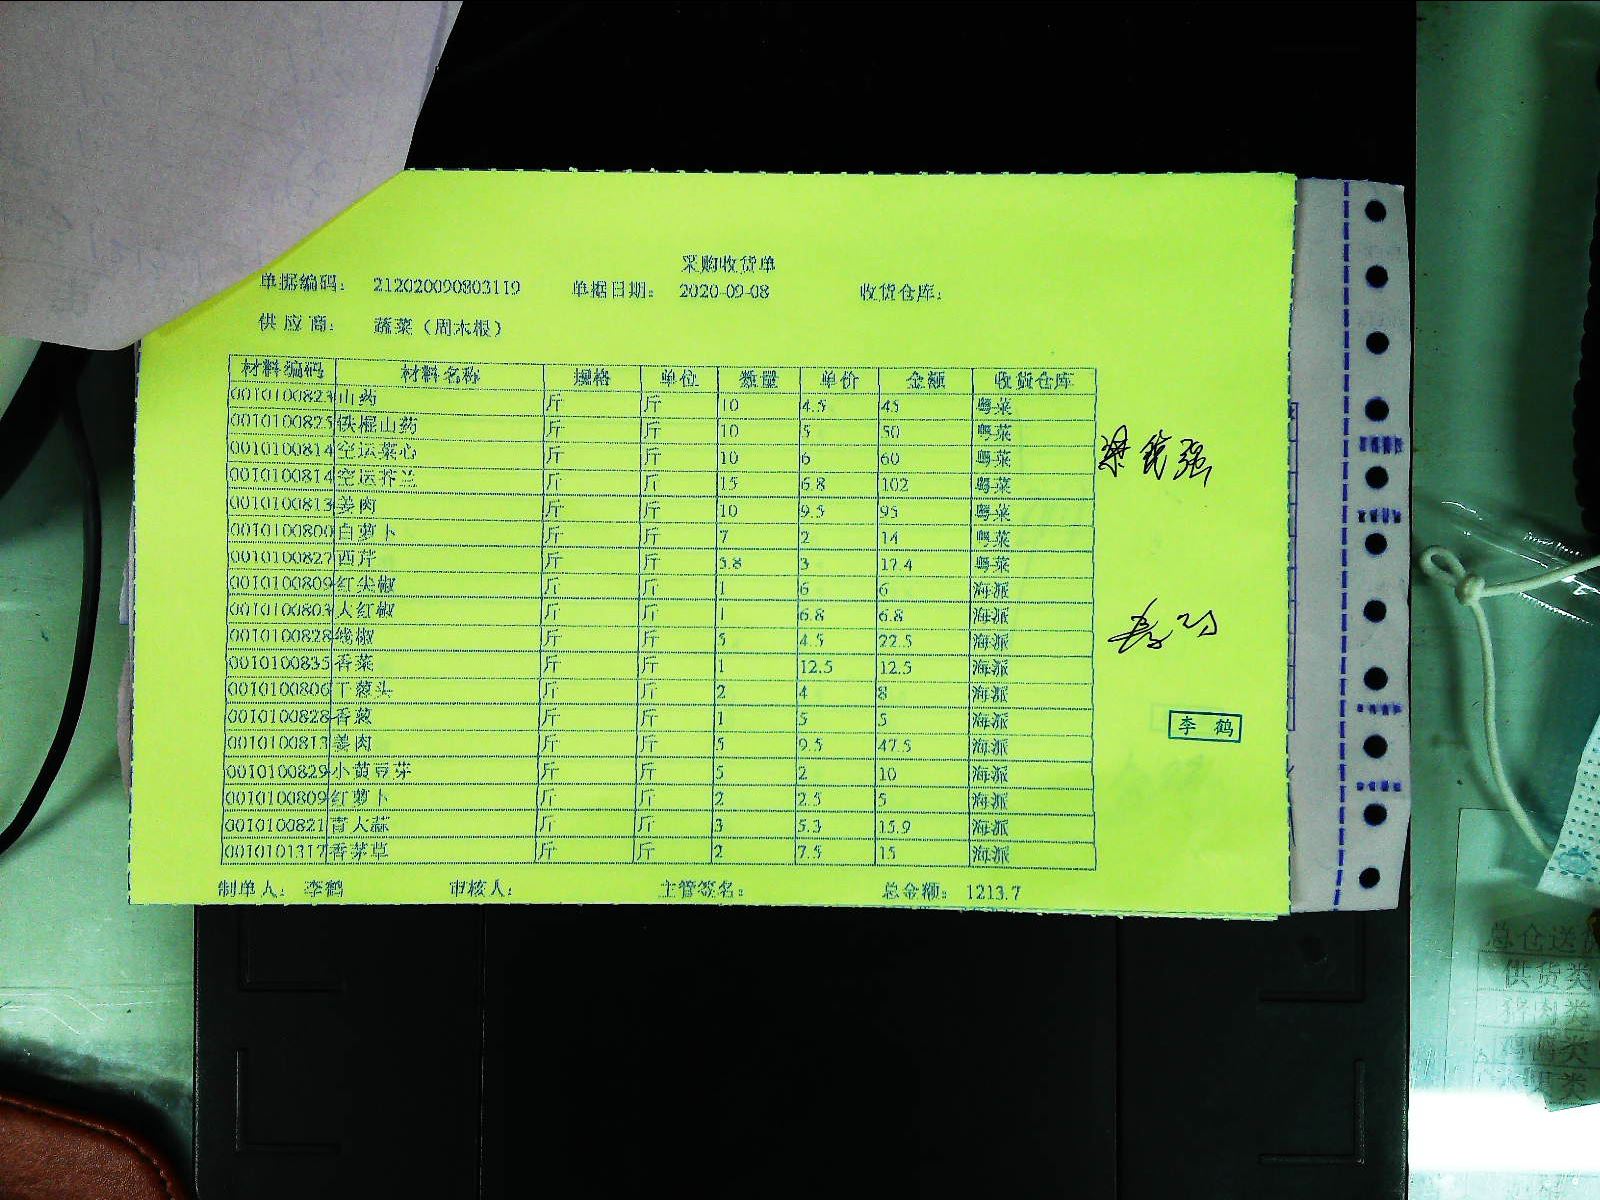 采购收货单
单据编码： 212020090803119 单据日期： 2020-09-08 收货仓库：
供应商： 蔬菜（周木根）
材料编码 材料名称 规格 单位 数量 单价 金额 收货仓库
0010100823 山药 斤 斤 10 4.5 45 粤菜
0010100825 铁棍山药 斤 斤 10 5 50 粤菜
0010100814 空运菜心 斤 斤 10 6 60 粤菜
0010100814 空运芥兰 斤 斤 15 6.8 102 粤菜
0010100813 姜肉 斤 斤 10 9.5 95 粤菜
0010100800 白萝卜 斤 斤 7 2 14 粤菜
0010100827 西芹 斤 斤 5.8 3 17.4 粤菜
0010100809 红尖椒 斤 斤 1 6 6 海派
0010100803 大红椒 斤 斤 1 6.8 6.8 海派
0010100828 线椒 斤 斤 5 4.5 22.5 海派
0010100835 香菜 斤 斤 1 12.5 12.5 海派
0010100806 干葱头 斤 斤 2 4 8 海派
0010100828 香葱 斤 斤 1 5 5 海派
0010100813 姜肉 斤 斤 5 9.5 47.5 海派
0010100829 小黄豆芽 斤 斤 5 2 10 海派
0010100809 红萝卜 斤 斤 2 2.5 5 海派
0010100821 青大蒜 斤 斤 3 5.3 15.9 海派
0010101317 香茅草 斤 斤 2 7.5 15 海派
李鹤
制单人： 李鹤 审核人： 主管签名： 总金额： 1213.7
总仓送
供货类
猪肉类
鸡鸭类